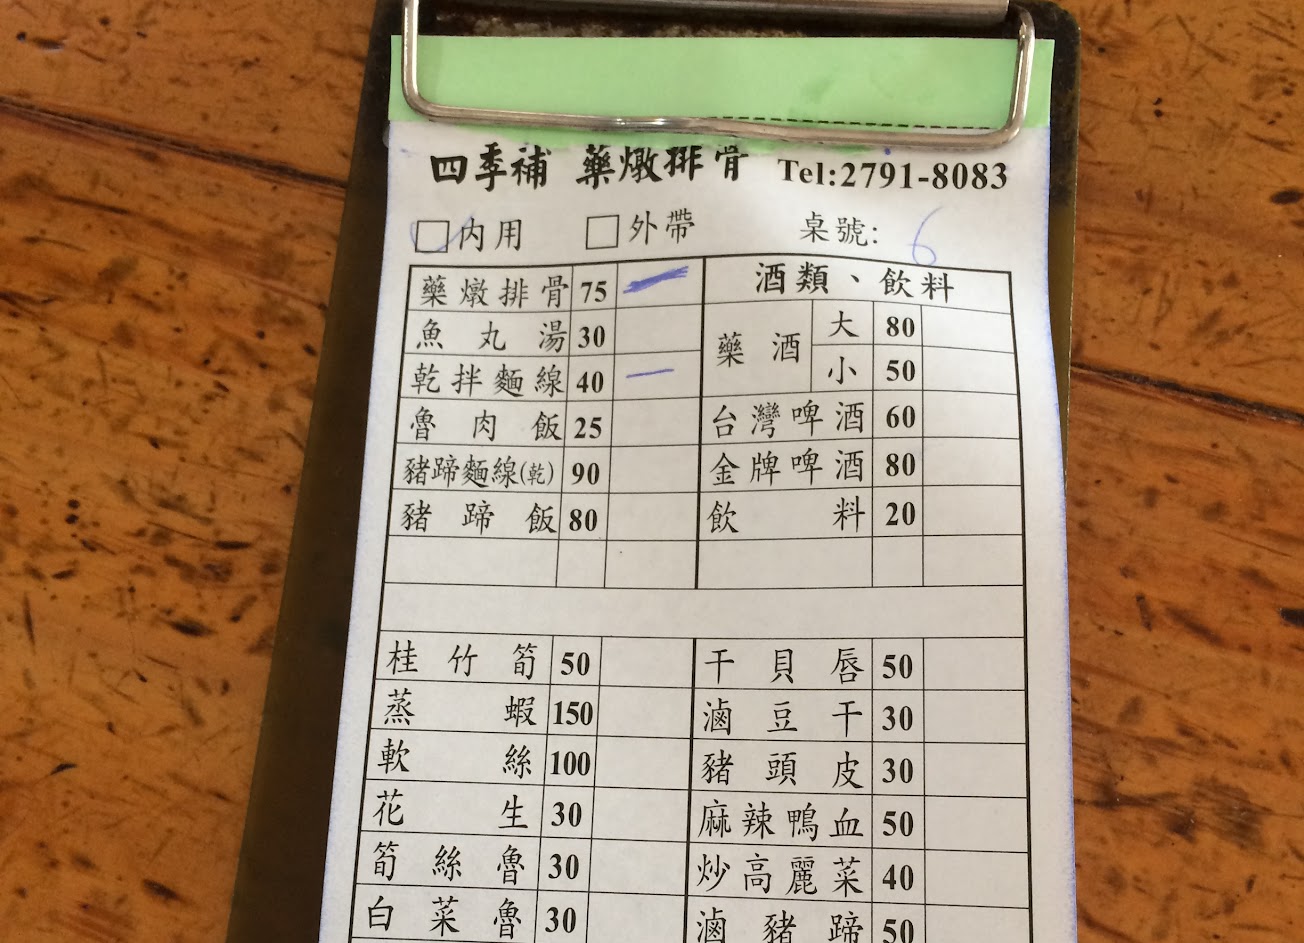 四季補 藥燉排骨 Tel:2791-8083
□內用 □外帶 桌號: 6
藥燉排骨 75 一
魚丸湯 30
乾拌麵線 40 一
魯肉飯 25
豬蹄麵線(乾) 90
豬蹄飯 80
酒類、飲料
藥酒 大 80
小 50
台灣啤酒 60
金牌啤酒 80
飲料 20
桂竹筍 50
蒸蝦 150
軟絲 100
花生 30
筍絲魯 30
白菜魯 30
干貝唇 50
滷豆干 30
豬頭皮 30
麻辣鴨血 50
炒高麗菜 40
滷豬蹄 50